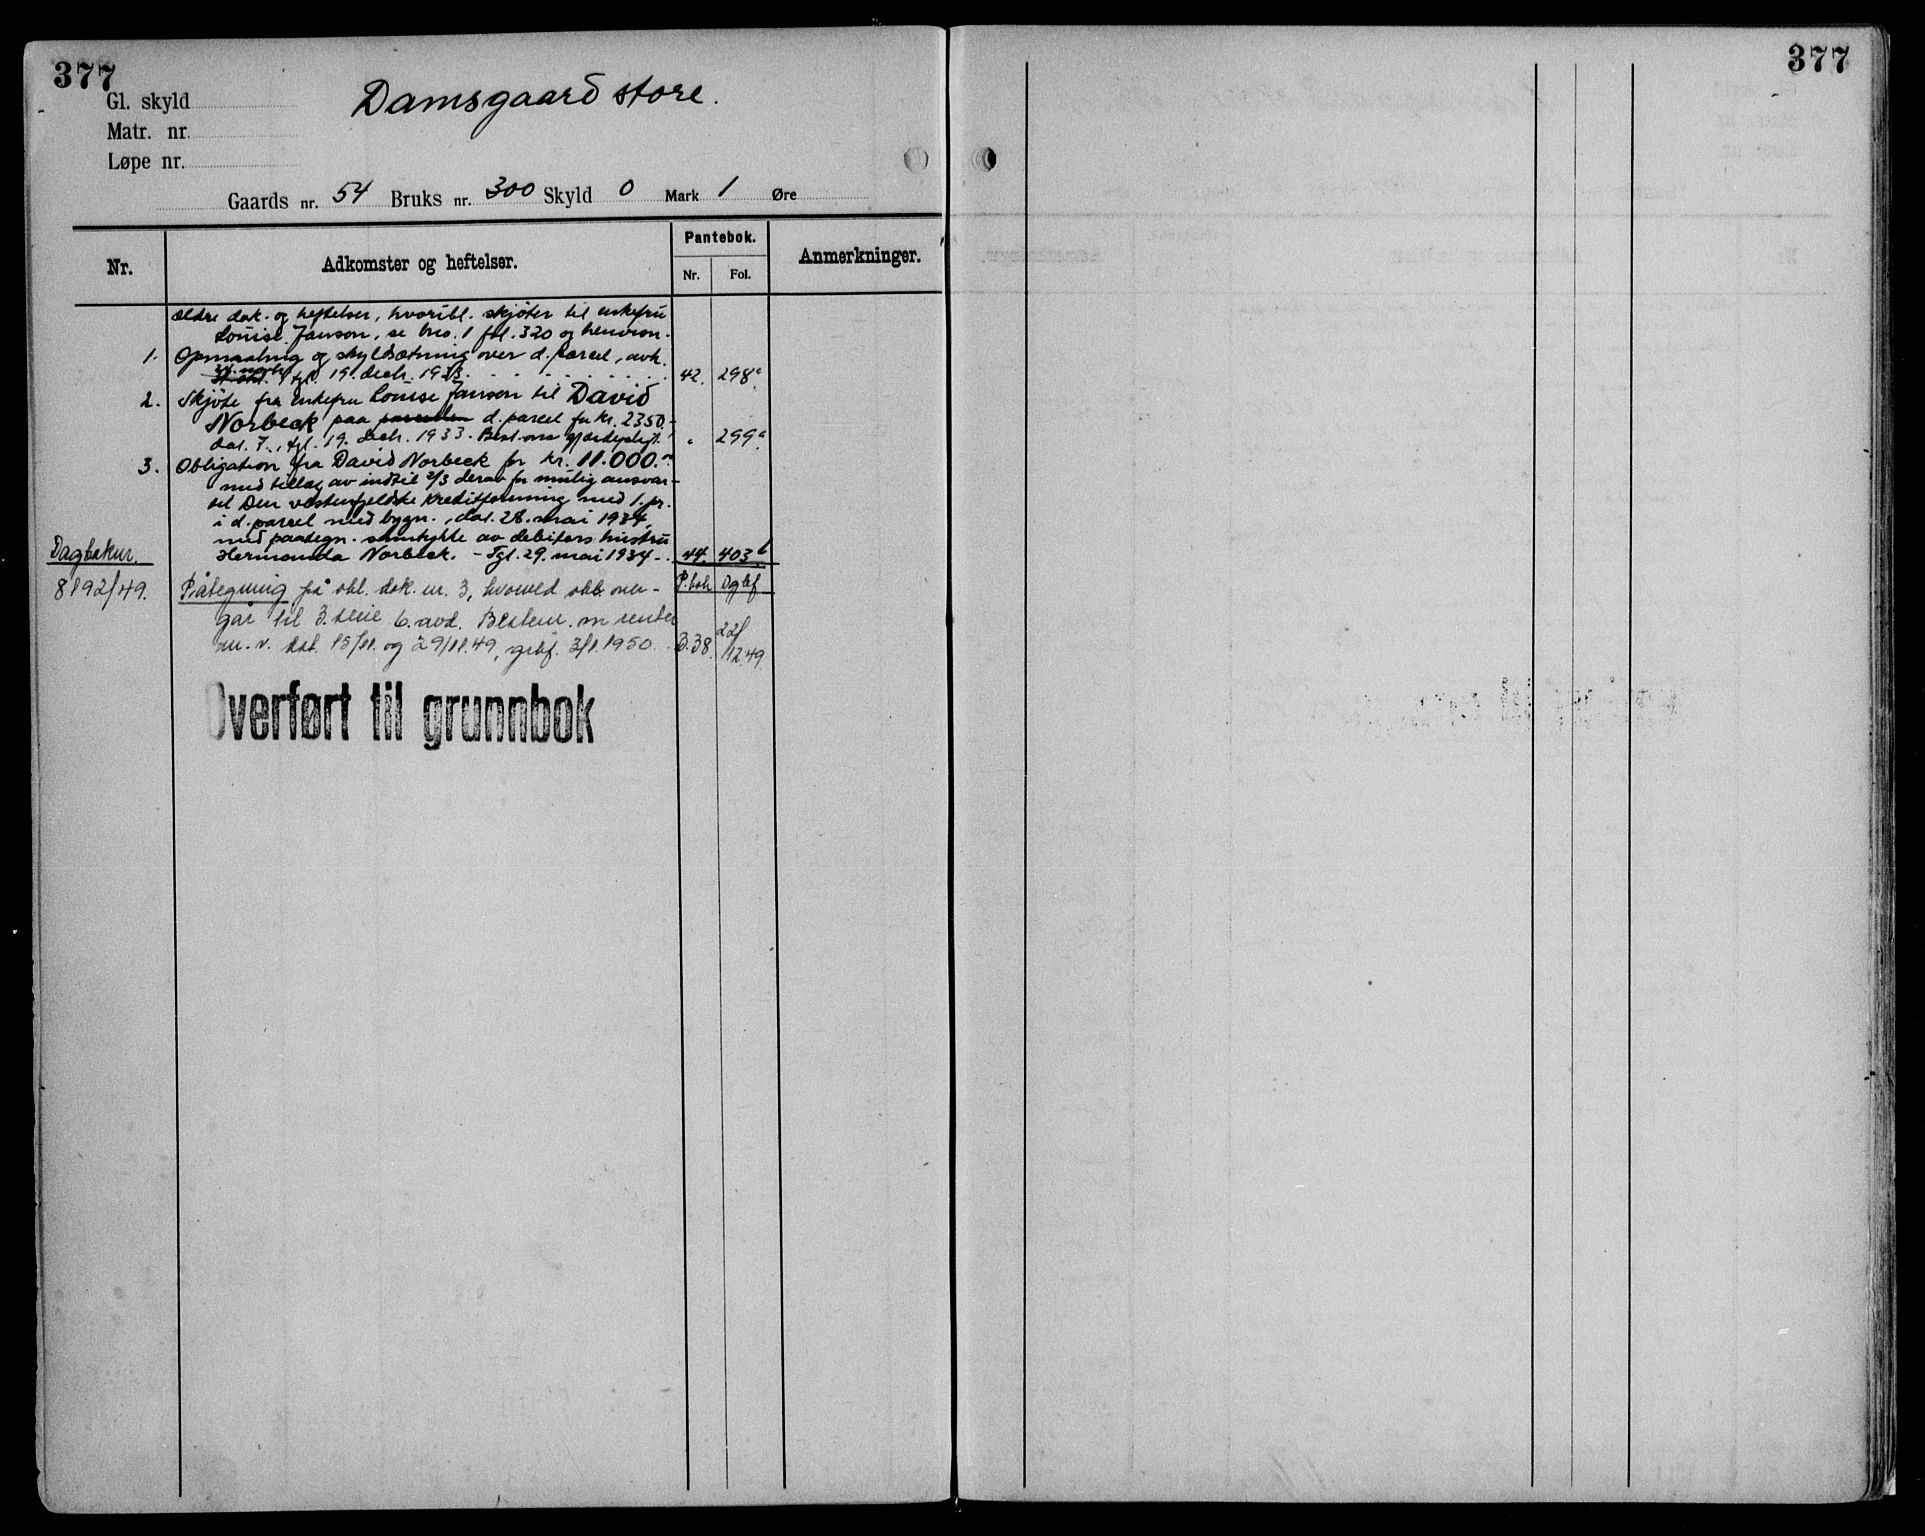 377
377
Gl. skyld
Damsgaard store.
Matr. nr.
Løpe nr.
Gaards nr. 54 Bruks nr. 300 Skyld 0 Mark 1 Øre
Nr.
Adkomster og heftelser.
Pantebok.
Nr.
Fol.
Anmerkninger.
ældre dok. og heftelser, hvoribl. skjøter til enkefru
Louise Janson, se bno. 1 fol. 320 og henvisn.
1. Opmaaling og skyldsætning over d. parcel, avh.
tgl. 19. decbr. 1933. 42. 298a
2. Skjøte fra enkefru Louise Janson til David
Norbeck paa parcellen d. parcel for kr. 2350.-
dat. 7., tgl. 19. decbr. 1933. Best. om gjærdepligt. " 299a
3. Obligation fra David Norbeck for kr. 11.000.
med tillæg av indtil 2/3 derav for mulig ansvar
til Den vestenfjeldske Kreditforening med 1. pr.
i d. parcel med bygn., dat. 28. mai 1934,
med paategn. samtykke av debitors hustru
Hermanda Norbeck. - Tgl. 29. mai 1934. 44. 403b
Dagboknr.
P.bok Dagbf
8192/49. Påtegning på obl. dok. nr. 3, hvorved obl. over-
går til 3. serie 6. avd. Bestem. om renter
m. v. Dat. 15/11 og 29/11.49, 3/1 1950. B.38. 22/12.49.
Overført til grunnbok